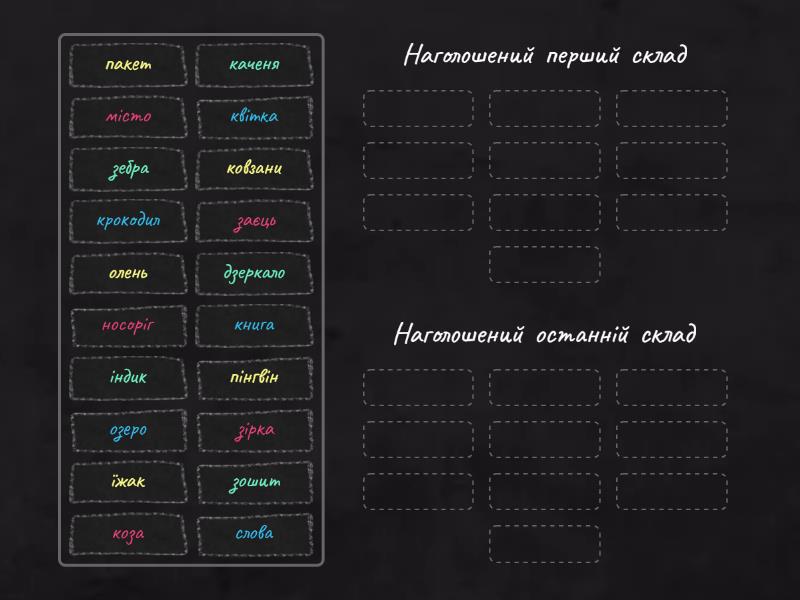 пакет каченя
місто квітка
зебра ковзани
крокодил заєць
олень дзеркало
носоріг книга
індик пінгвін
озеро зірка
їжак зошит
коза слова
Наголошений перший склад
Наголошений останній склад